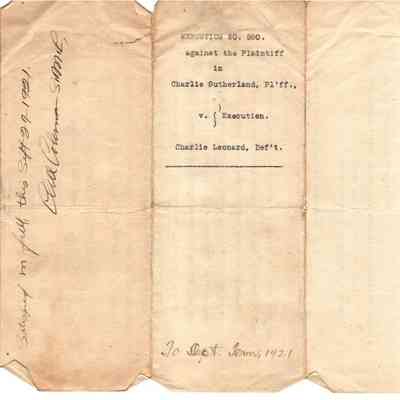 EXECUTION NO. 990.
against the Plaintiff
in
Charlie Sutherland, Pl'ff.,
v. { Execution.
Charlie Leonard, Def't.
To Sept. Term, 1921
Satisfied in full this Sept 29 1921.